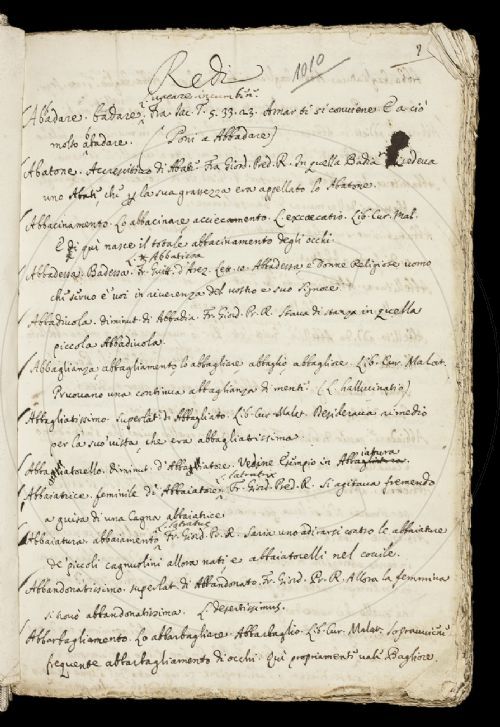 Redi
1010
1
L. vacare incumbere
Abadare. badare. Fra Iac. T. 5. 33. 23. Amar ti si conviene E a ciò
molto abadare. (Poni a Abbadare)
Abatone. Accrescitivo di Abati. Fra Giord. Pred. R. In quella Badia risedeva
uno Abati chi p la sua grassezza era appellato lo Abatone.
Abbacinamento. Lo abbacinare, acciecamento. L. excaecatio. Lib. Cur. Mal.
E di qui nasce il totale abbacinamento degli occhi.
L. Abbatissa
Abbadessa. Badessa. Fr. Guitt. d'Arez. Lett. 10. Abadessa e Donne Religiose uomo
chi servo è voi in reverenza del vostro e suo signore.
Abbadivola. diminut. di Abbadia. Fr. Giord. Pr. R. Stava di stanza in quella
piccola Abbadivola.
Abbaglianza, abbagliamento, lo abbagliare, abbaglio, abbagliore. Lib. Cur. Malat.
Pruovano una continua abbaglianza di menti. (L. halluvinatio)
Abbagliatissimo. superlat. di Abbagliato. Lib. Cur. Malat. Desiderava rimedio
per la suo vista, che era abbagliatissima
Abbaiatorello. Diminut. d'Abbaiatore. Vedine Esempio in Abbaiatura
L. latratrix
Abbaiatrice. feminile di Abbaiatore. Fr. Giord. Pred. R. Si agitava fremendo
a guisa di una Cagna abbaiatrice
L. latratus
Abbaiatura. abbaiamento. Fr. Giord. Pr. R. Saria uno adirarsi contro le abbaiature
de' piccoli cagnuolini allora nati, e abbaiatorelli nel covile.
Abbandonatissimo. superlat. di Abbandonato. Fr. Giord. Pr. R. Allora la femmina
si trovò abbandonatissima. L. desertissimus.
Abbarbagliamento. Lo abbarbagliare. Abbarbaglio. Lib. Cur. Malat. Sopravvieni
frequente abbarbagliamento di occhi. Qui propriamenti vali Bagliore.